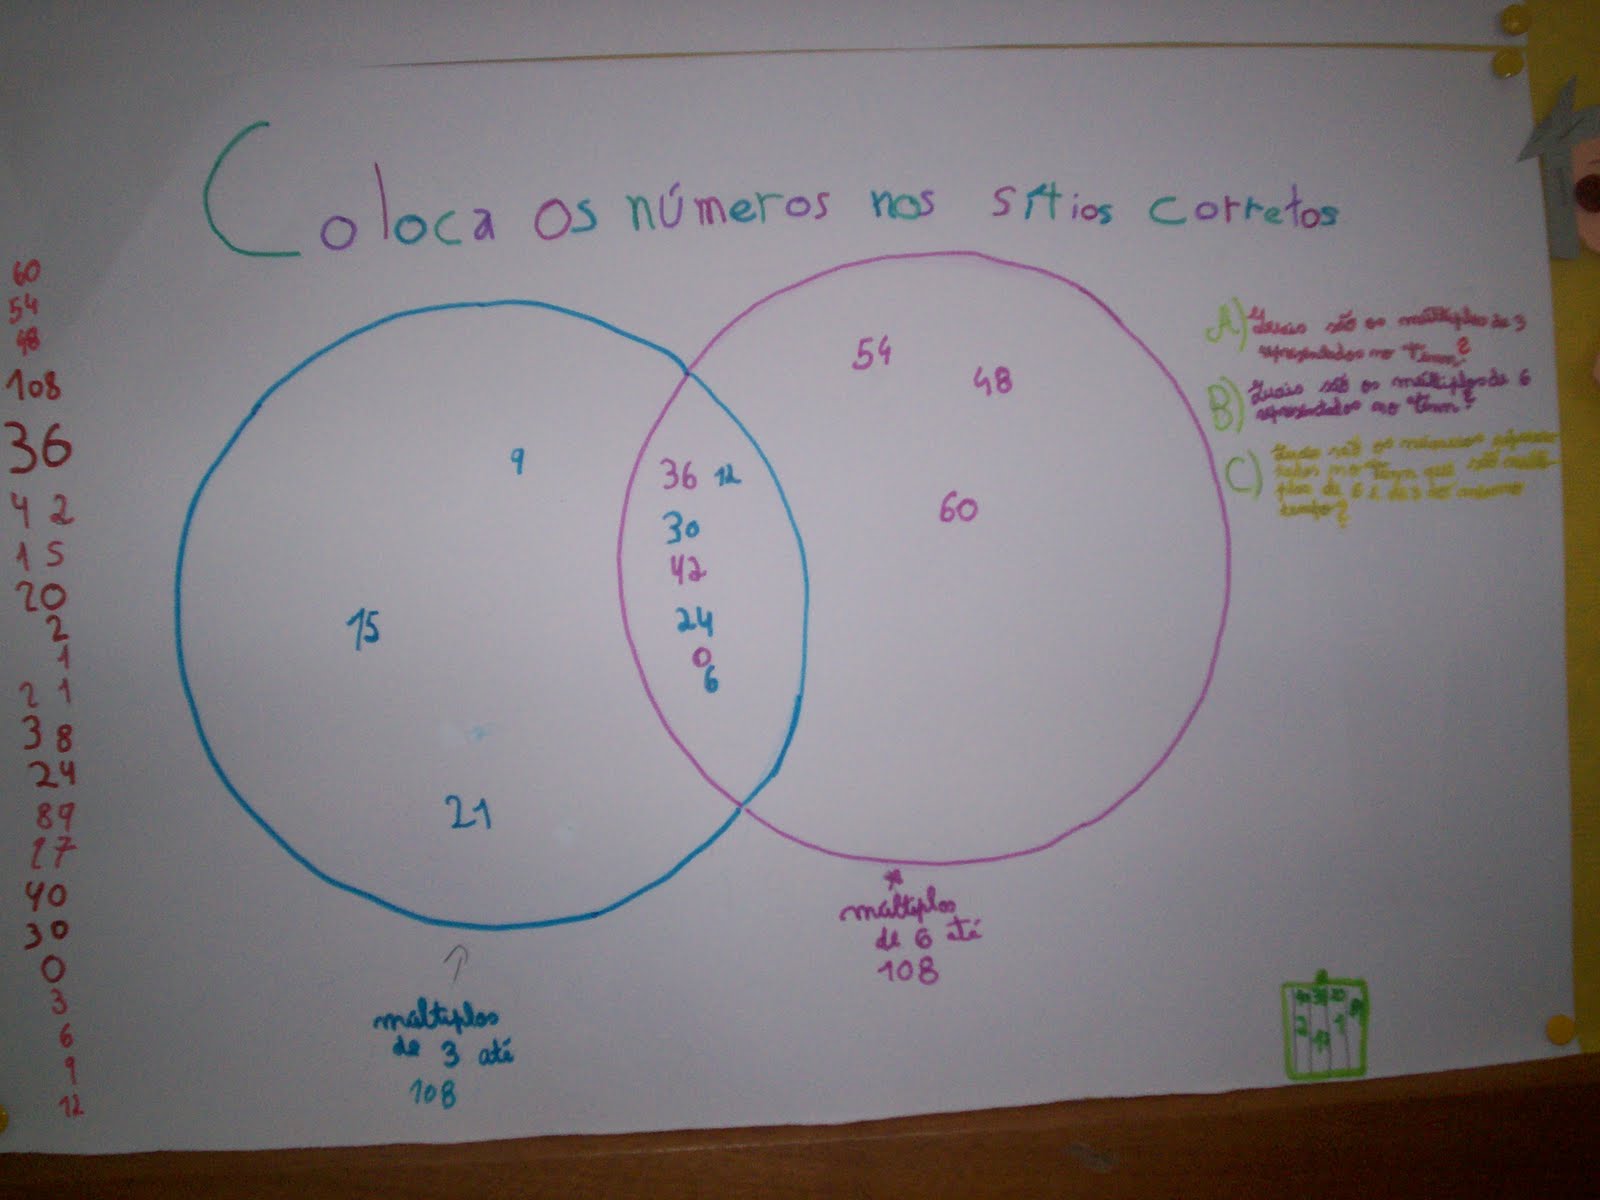 Coloca os números nos sítios corretos
60
54
48
108
36
42
15
20
2
1
21
38
24
89
17
40
30
0
3
6
9
12
9
15
21
36 12
30
42
24
0
6
54
48
60
múltiplos
de 3 até
108
múltiplos
de 6 até
108
A) Quais são os múltiplos de 3
representados no Venn?
B) Quais são os múltiplos de 6
representados no Venn?
C) Quais são os números represen-
tados no Venn que são múlti-
plos de 6 e de 3 ao mesmo
tempo?